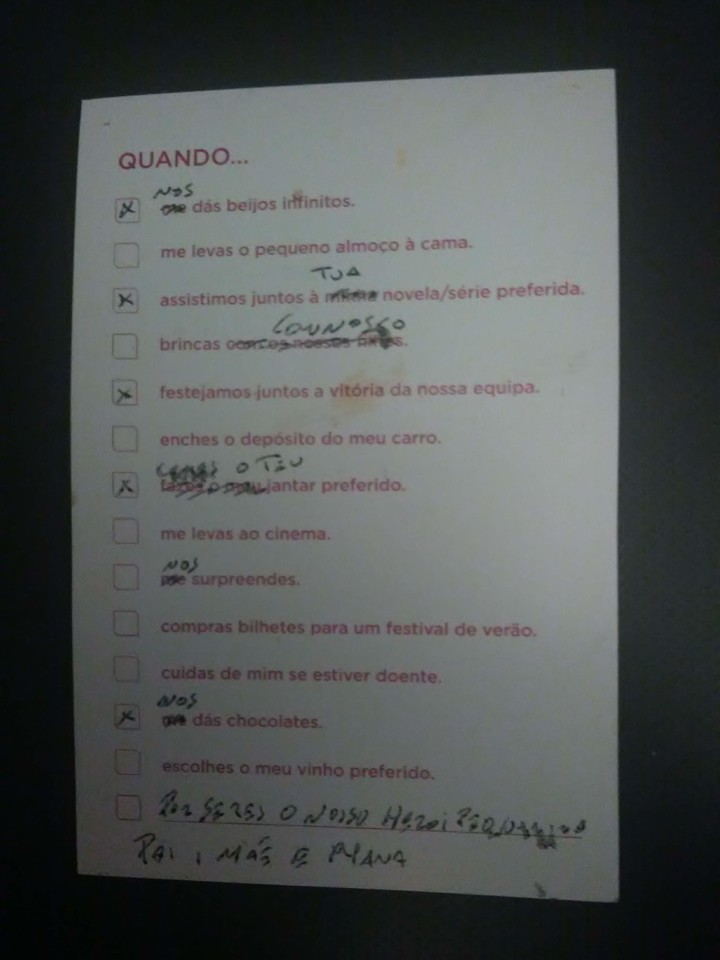 QUANDO...
NOS
me dás beijos infinitos.
me levas o pequeno almoço à cama.
TUA
assistimos juntos à minha novela/série preferida.
CONNOSCO
brincas com os nossos filhos.
festejamos juntos a vitória da nossa equipa.
enches o depósito do meu carro.
COMES O TEU
fazes o meu jantar preferido.
me levas ao cinema.
NOS
me surpreendes.
compras bilhetes para um festival de verão.
cuidas de mim se estiver doente.
NOS
me dás chocolates.
escolhes o meu vinho preferido.
POR SERES O NOSSO HEROI PEQUENINO
PAI, MÃE E MANA